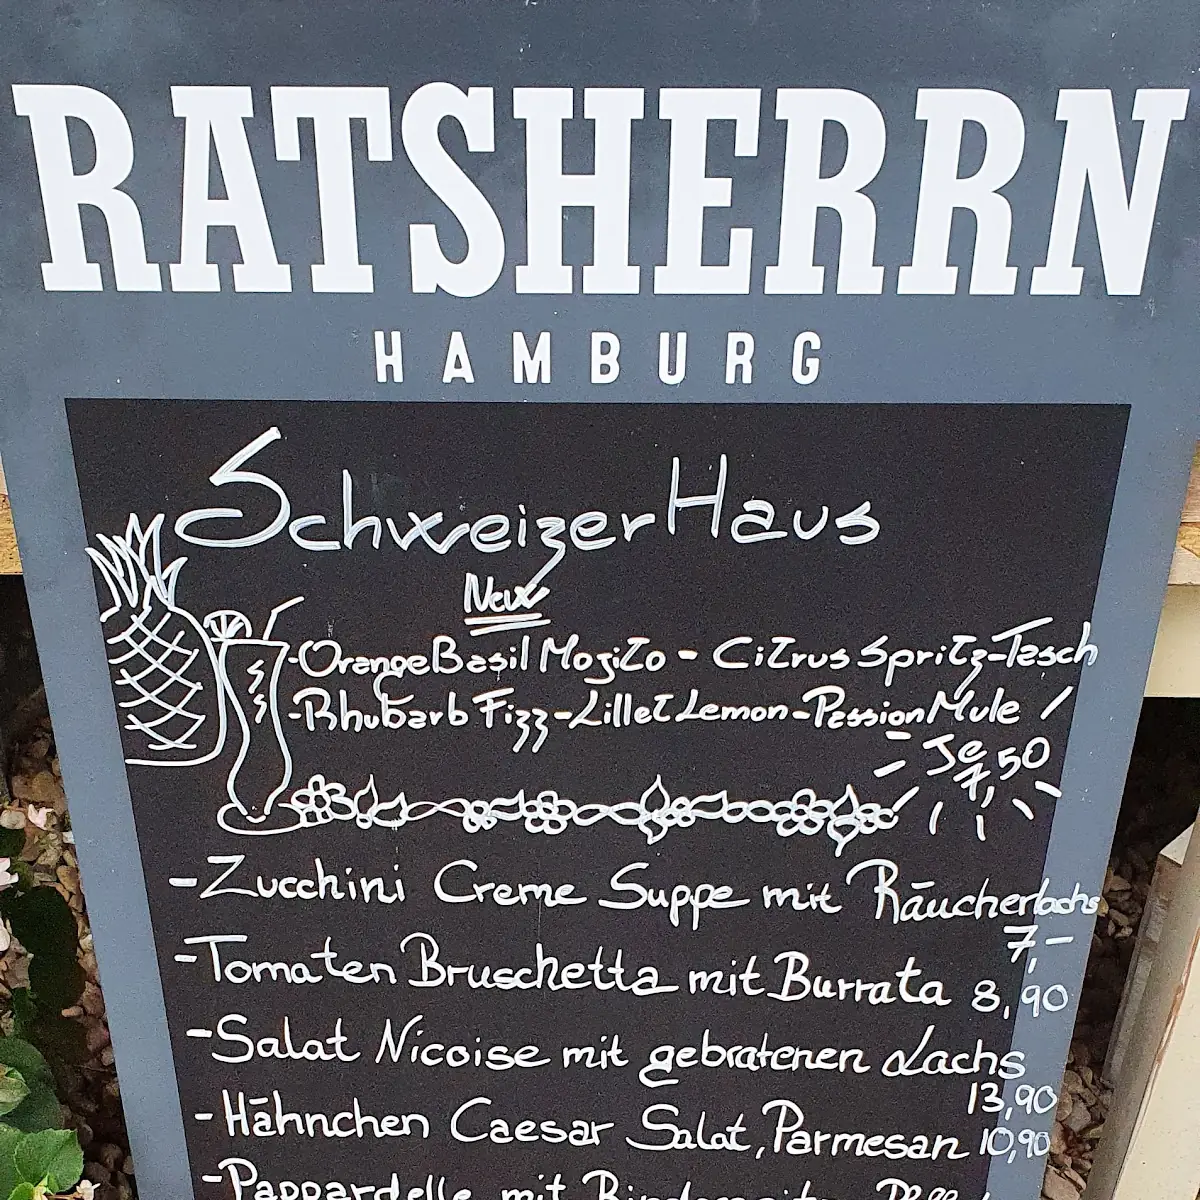 RATSHERRN
HAMBURG
Schweizer Haus
New
-Orange Basil Mojito - Citrus Spritz-Tesch
-Rhubarb Fizz-Lillet Lemon-Passion Mule
Je
7,50
-Zucchini Creme Suppe mit Räucherlachs
7,-
-Tomaten Bruschetta mit Burrata 8,90
-Salat Nicoise mit gebratenen Lachs
13,90
-Hähnchen Caesar Salat, Parmesan 10,90
-Pappardelle mit